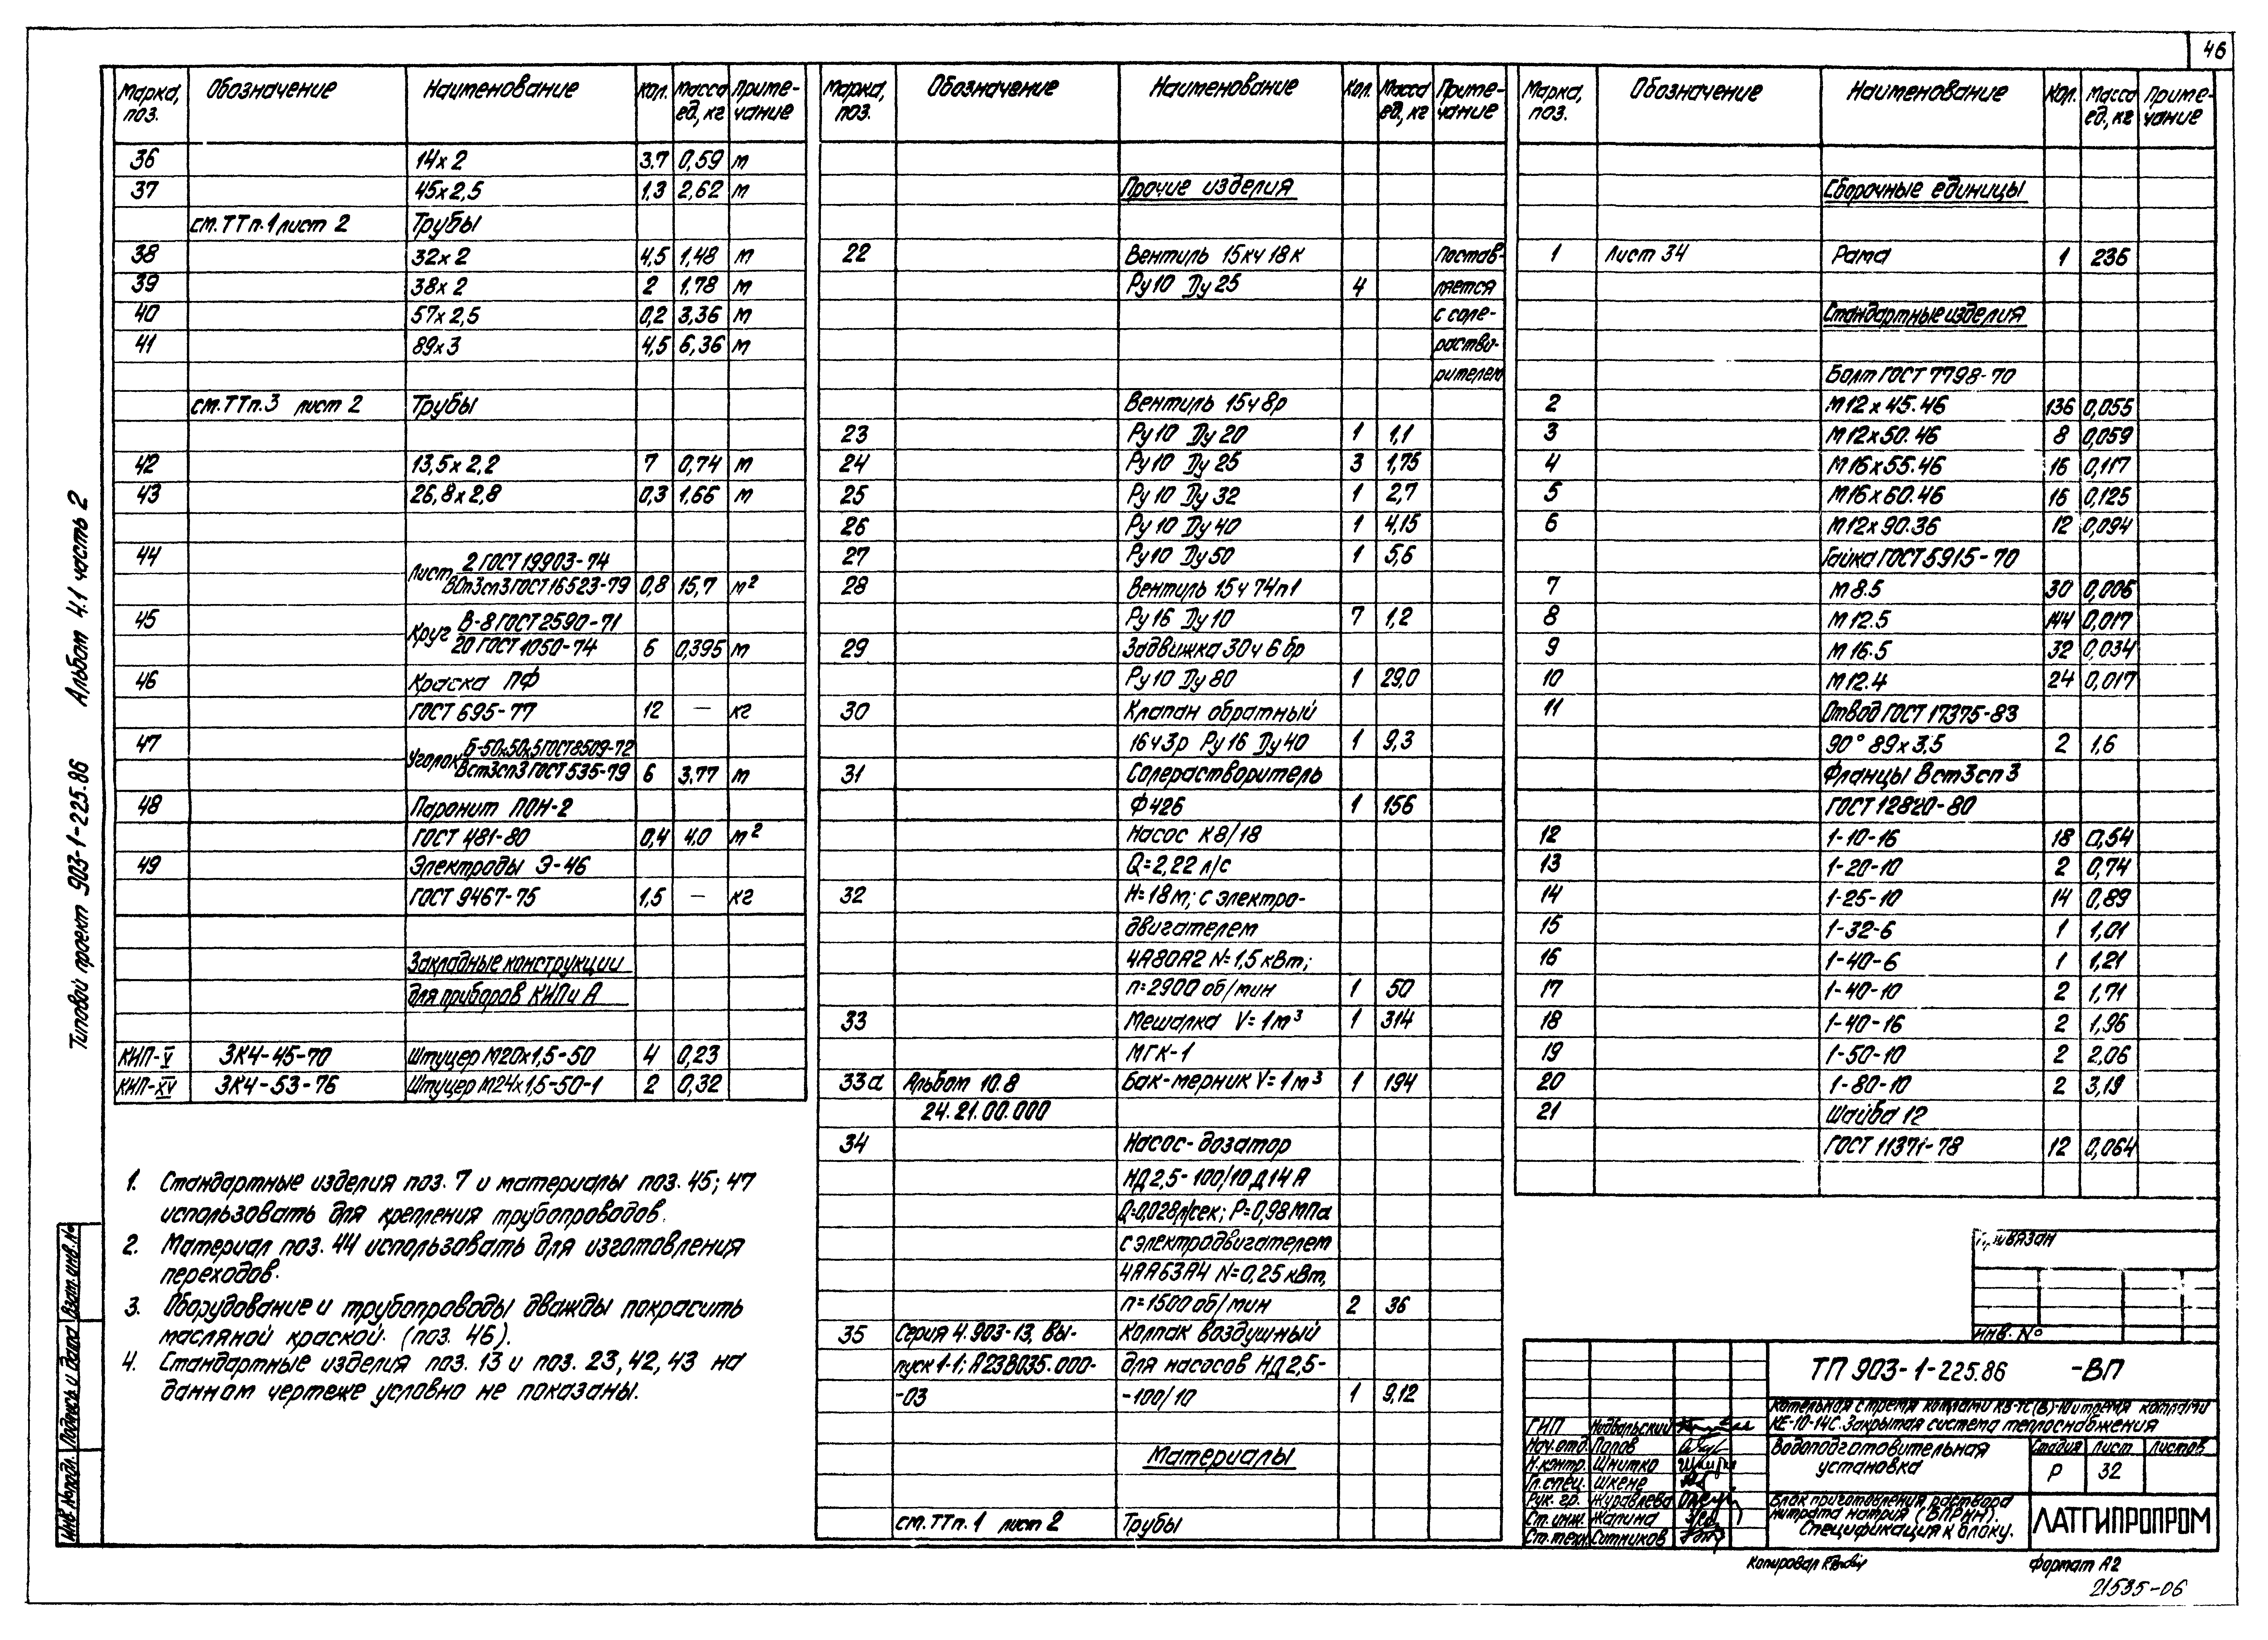 46
Марка, поз. Обозначение Наименование Кол. Масса ед., кг Примечание
36 14х2 3.7 0,59 м
37 45х2,5 1,3 2,62 м
см. ТТ п.1 лист 2 Трубы
38 32х2 4,5 1,48 м
39 38х2 2 1,78 м
40 57х2,5 0,2 3,36 м
41 89х3 4,5 6,36 м
см. ТТ п.3 лист 2 Трубы
42 13,5х2,2 7 0,74 м
43 26,8х2,8 0,3 1,66 м
44 Лист 2 ГОСТ 19903-74
ВСт3сп3 ГОСТ 16523-79 0,8 15,7 м²
45 Круг В-8 ГОСТ 2590-71
20 ГОСТ 1050-74 6 0,395 м
46 Краска ПФ
ГОСТ 695-77 12 — кг
47 Уголок Б-50х50х5 ГОСТ 8509-72
Вст3сп3 ГОСТ 535-79 6 3,77 м
48 Паронит ПОН-2
ГОСТ 481-80 0,4 4.0 м²
49 Электроды Э-46
ГОСТ 9467-75 1,5 — кг
Закладные конструкции
для приборов КИП и А
КИП-V ЗК4-45-70 Штуцер М20х1,5-50 4 0,23
КИП-XV ЗК4-53-76 Штуцер М24х1,5-50-1 2 0,32
1. Стандартные изделия поз. 7 и материалы поз. 45; 47
использовать для крепления трубопроводов.
2. Материал поз. 44 использовать для изготовления
переходов.
3. Оборудование и трубопроводы дважды покрасить
масляной краской. (поз. 46).
4. Стандартные изделия поз. 13 и поз. 23, 42, 43 на
данном чертеже условно не показаны.
Марка, поз. Обозначение Наименование Кол. Масса ед., кг Примечание
Прочие изделия
22 Вентиль 15кч 18к Постав-
Ру10 Ду 25 4 ляется
с соле-
раство-
рителем
Вентиль 15ч8р
23 Ру10 Ду 20 1 1,1
24 Ру10 Ду 25 3 1,75
25 Ру10 Ду 32 1 2,7
26 Ру10 Ду 40 1 4,15
27 Ру10 Ду 50 1 5,6
28 Вентиль 15ч 74п1
Ру 16 Ду 10 7 1,2
29 Задвижка 30ч 6 бр
Ру10 Ду 80 1 29,0
30 Клапан обратный
16ч3р Ру 16 Ду 40 1 9,3
31 Солерастворитель
Ф 426 1 156
Насос К8/18
Q=2,22 л/с
32 Н=18м; с электро-
двигателем
4А80А2 N=1,5 кВт;
n=2900 об/мин 1 50
33 Мешалка V=1м³ 1 314
МГК-1
33а Альбом 10.8 Бак-мерник V=1м³ 1 194
24.21.00.000
34 Насос-дозатор
НД 2,5-100/10 Д14 А
Q=0,028л/сек; Р=0,98 МПа
с электродвигателем
4АА63А4 N=0,25 кВт,
n=1500 об/мин 2 36
35 Серия 4.903-13, Вы- Колпак воздушный
пуск 1-1; А23В035.000- для насосов НД 2,5-
-03 -100/10 1 9,12
Материалы
см. ТТ п. 1 лист 2 Трубы
Марка, поз. Обозначение Наименование Кол. Масса ед., кг Примечание
Сборочные единицы
1 Лист 34 Рама 1 236
Стандартные изделия
Болт ГОСТ 7798-70
2 М12х45.46 136 0,055
3 М12х50.46 8 0,059
4 М16х55.46 16 0,117
5 М16х60.46 16 0,125
6 М12х90.36 12 0,094
Гайка ГОСТ 5915-70
7 М8.5 30 0,006
8 М12.5 144 0,017
9 М16.5 32 0,034
10 М12.4 24 0,017
11 Отвод ГОСТ 17375-83
90° 89х3,5 2 1,6
Фланцы Вст3сп3
ГОСТ 12820-80
12 1-10-16 18 0,54
13 1-20-10 2 0,74
14 1-25-10 14 0,89
15 1-32-6 1 1,01
16 1-40-6 1 1,21
17 1-40-10 2 1,71
18 1-40-16 2 1,96
19 1-50-10 2 2,06
20 1-80-10 2 3,19
21 Шайба 12
ГОСТ 11371-78 12 0,064
Привязан
Инв. №
ТП 903-1-225.86 -ВП
Котельная с тремя котлами КВ-ТС(В)-10 и тремя котлами
КЕ-10-14С. Закрытая система теплоснабжения
ГИП Надвольский
Нач.отд. Попов
Н.контр. Шнитко
Гл.спец. Шкене
Рук. гр. Журавлева
Ст.инж. Жапина
Ст.техн. Ситников
Водоподготовительная
установка
Стадия Лист Листов
Р 32
Блок приготовления раствора
нитрата натрия (БПРНН).
Спецификация к блоку.
ЛАТГИПРОПРОМ
Копировал
Формат А2
21535-06
Типовой проект 903-1-225.86 Альбом 4.1 часть 2
Инв. № подл. Подпись и дата Взам. инв. №